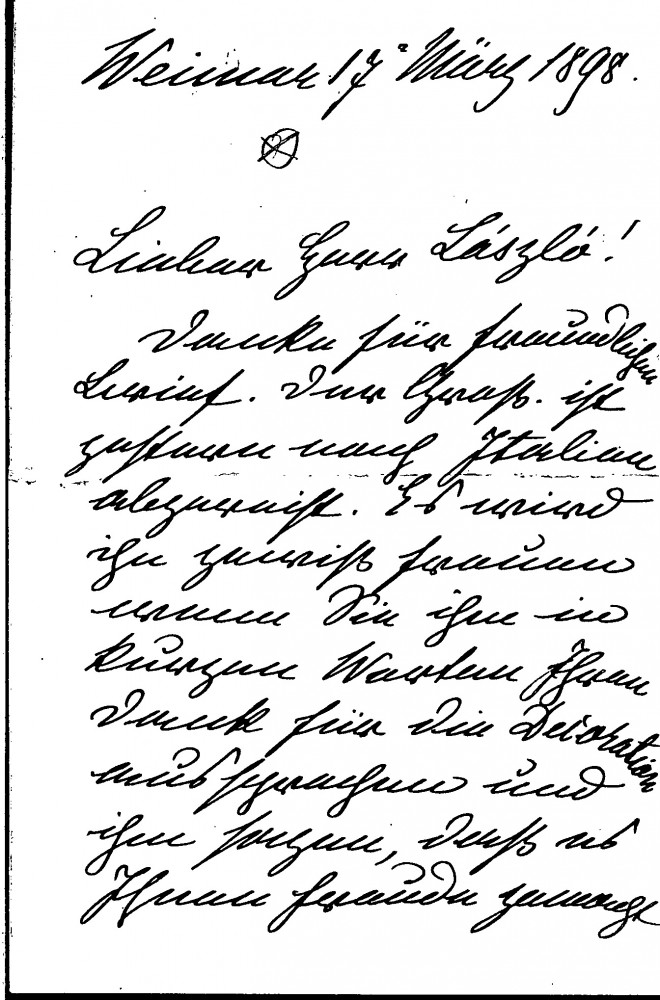 Weimar 17. März 1898.
Lieber Herr László!
Danke für freundlichen
Brief. Der Großh. ist
gestern nach Italien
abgereist. Es wird
ihn gewiß freuen
wenn Sie ihm in
kurzen Worten Ihren
Dank für die Decoration
aussprechen und
ihm sagen, daß es
Ihnen Freude gemacht